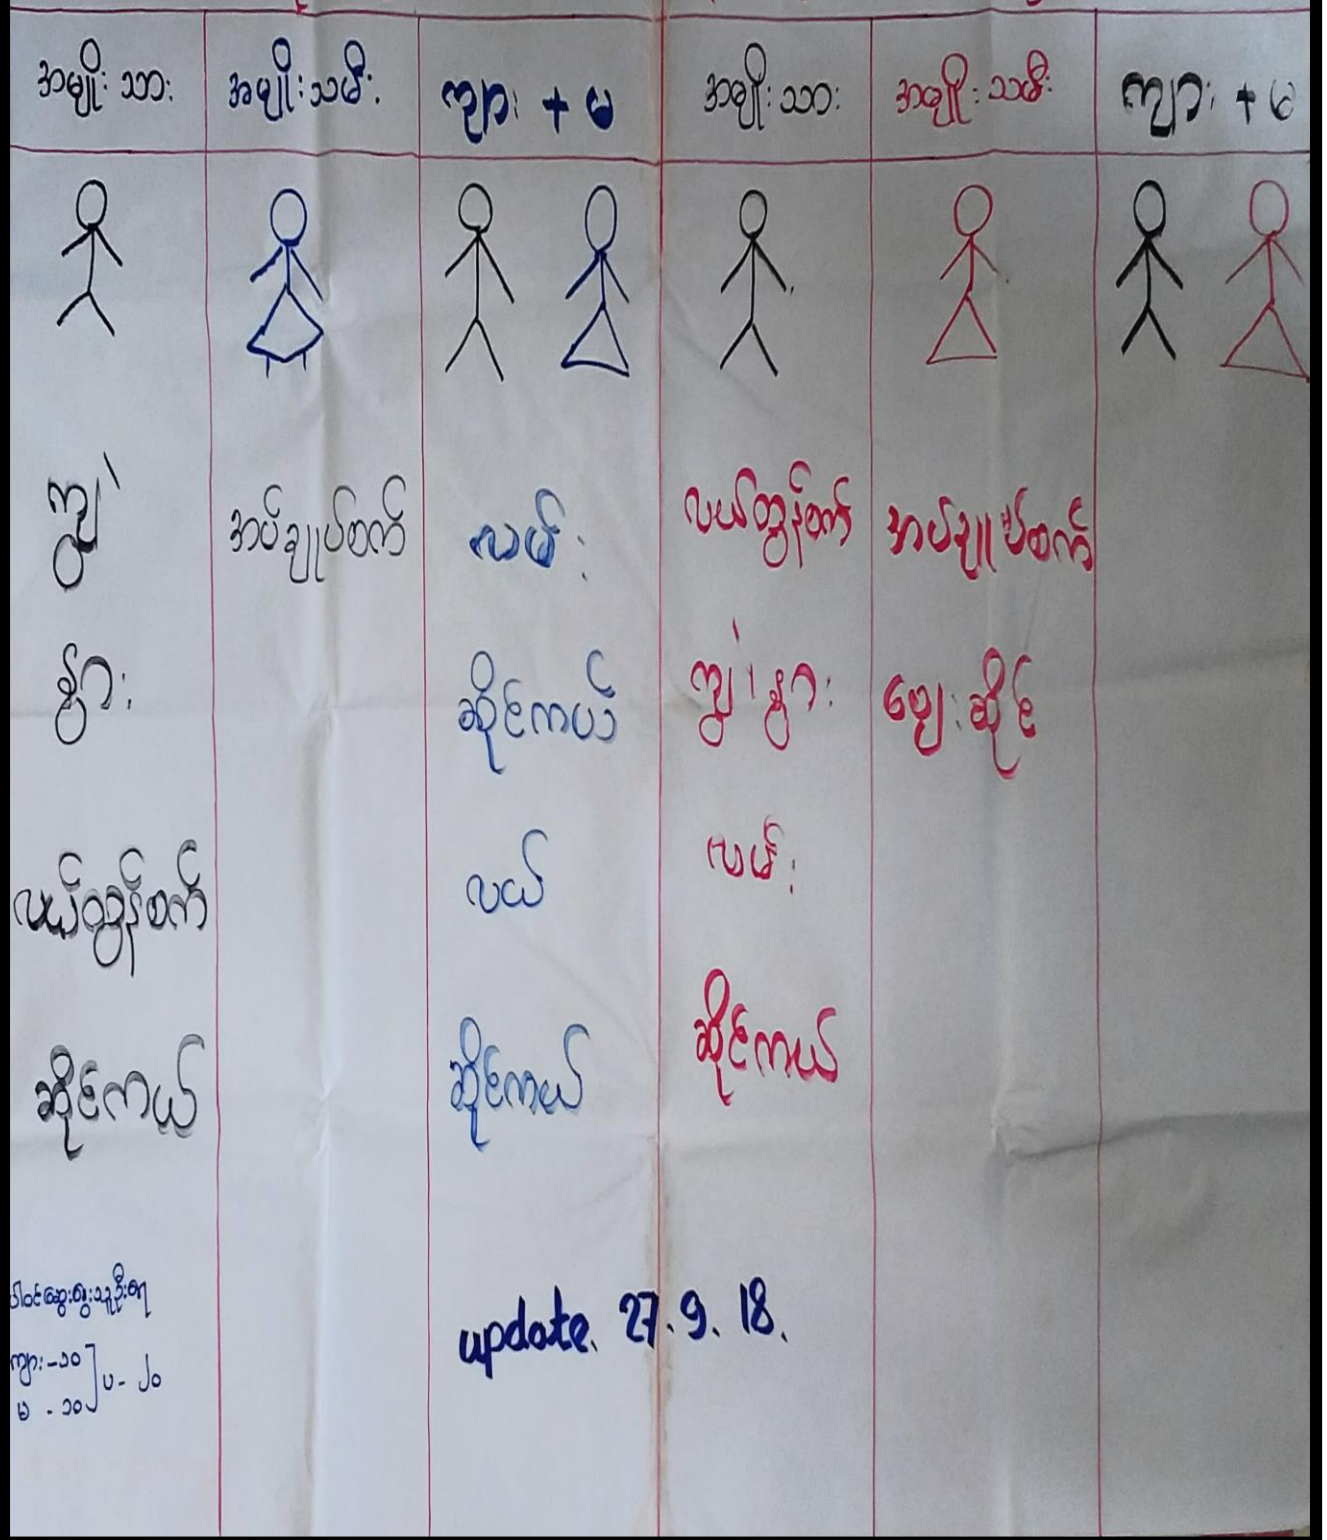 အမျိုးသား
အမျိုးသမီး
ကျား + မ
အမျိုးသား
အမျိုးသမီး
ကျား + မ
ကျွဲ
နွား
လယ်ထွန်စက်
ဆိုင်ကယ်
အပ်ချုပ်စက်
လမ်း
ဆိုင်ကယ်
လယ်
ဆိုင်ကယ်
လယ်ထွန်စက်
ကျွဲ၊ နွား
လမ်း
ဆိုင်ကယ်
အပ်ချုပ်စက်
ဈေးဆိုင်
ပါဝင်ဆွေးနွေးသူဦးရေ
ကျား - ၁၀
မ - ၁၀
ပ - ၂၀
update. 27.9.18.